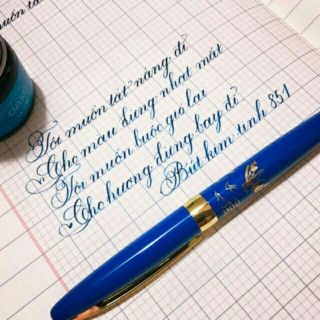 Tôi muốn tắt nắng đi
Cho màu đừng nhạt mất
Tôi muốn buộc gió lại
Cho hương đừng bay đi
Bút kim tinh 851